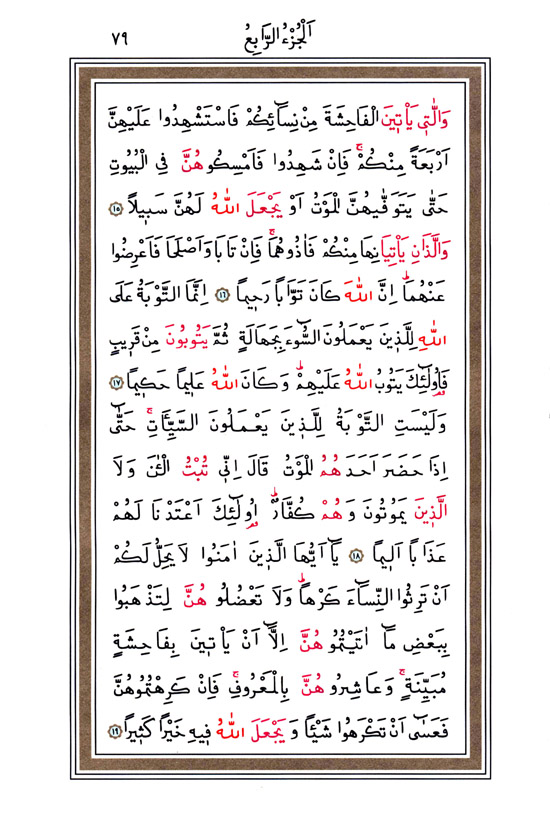 اَلْجُزْءُ الرَّابِعُ ٧٩
وَالّٰت۪ي يَأْت۪ينَ الْفَاحِشَةَ مِنْ نِسَٓائِكُمْ فَاسْتَشْهِدُوا عَلَيْهِنَّ
اَرْبَعَةً مِنْكُمْۚ فَاِنْ شَهِدُوا فَاَمْسِكُوهُنَّ فِي الْبُيُوتِ
حَتّٰى يَتَوَفّٰيهُنَّ الْمَوْتُ اَوْ يَجْعَلَ اللّٰهُ لَهُنَّ سَب۪يلاً ﴿١٥﴾
وَالَّذَانِ يَأْتِيَانِهَا مِنْكُمْ فَاٰذُوهُمَاۚ فَاِنْ تَابَا وَاَصْلَحَا فَاَعْرِضُوا
عَنْهُمَاۜ اِنَّ اللّٰهَ كَانَ تَوَّاباً رَح۪يماً ﴿١٦﴾ اِنَّمَا التَّوْبَةُ عَلَى
اللّٰهِ لِلَّذ۪ينَ يَعْمَلُونَ السُّٓوءَ بِجَهَالَةٍ ثُمَّ يَتُوبُونَ مِنْ قَر۪يبٍ
فَاُو۬لٰٓئِكَ يَتُوبُ اللّٰهُ عَلَيْهِمْۜ وَكَانَ اللّٰهُ عَل۪يماً حَك۪يماً ﴿١٧﴾
وَلَيْسَتِ التَّوْبَةُ لِلَّذ۪ينَ يَعْمَلُونَ السَّيِّـَٔاتِۚ حَتّٰٓى
اِذَا حَضَرَ اَحَدَهُمُ الْمَوْتُ قَالَ اِنّ۪ي تُبْتُ الْـٰٔنَ وَلَا
الَّذ۪ينَ يَمُوتُونَ وَهُمْ كُفَّارٌۜ اُو۬لٰٓئِكَ اَعْتَدْنَا لَهُمْ
عَذَاباً اَل۪يماً ﴿١٨﴾ يَٓا اَيُّهَا الَّذ۪ينَ اٰمَنُوا لَا يَحِلُّ لَكُمْ
اَنْ تَرِثُوا النِّسَٓاءَ كَرْهاًۜ وَلَا تَعْضُلُوهُنَّ لِتَذْهَبُوا
بِبَعْضِ مَٓا اٰتَيْتُمُوهُنَّ اِلَّٓا اَنْ يَأْت۪ينَ بِفَاحِشَةٍ
مُبَيِّنَةٍۚ وَعَاشِرُوهُنَّ بِالْمَعْرُوفِۚ فَاِنْ كَرِهْتُمُوهُنَّ
فَعَسٰٓى اَنْ تَكْرَهُوا شَيْـٔاً وَيَجْعَلَ اللّٰهُ ف۪يهِ خَيْراً كَث۪يراً ﴿١٩﴾